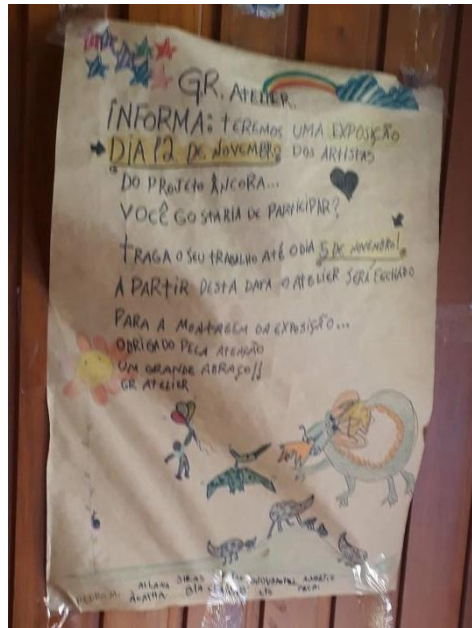 GR. ATELIER
INFORMA: TEREMOS UMA EXPOSIÇÃO
DIA 12 DE NOVEMBRO DOS ARTISTAS
DO PROJETO ÂNCORA...
VOCÊ GOSTARIA DE PARTICIPAR?
TRAGA O SEU TRABALHO ATÉ O DIA 5 DE NOVEMBRO!
A PARTIR DESTA DATA O ATELIER SERÁ FECHADO
PARA A MONTAGEM DA EXPOSIÇÃO...
OBRIGADO PELA ATENÇÃO
UM GRANDE ABRAÇO!!
GR ATELIER